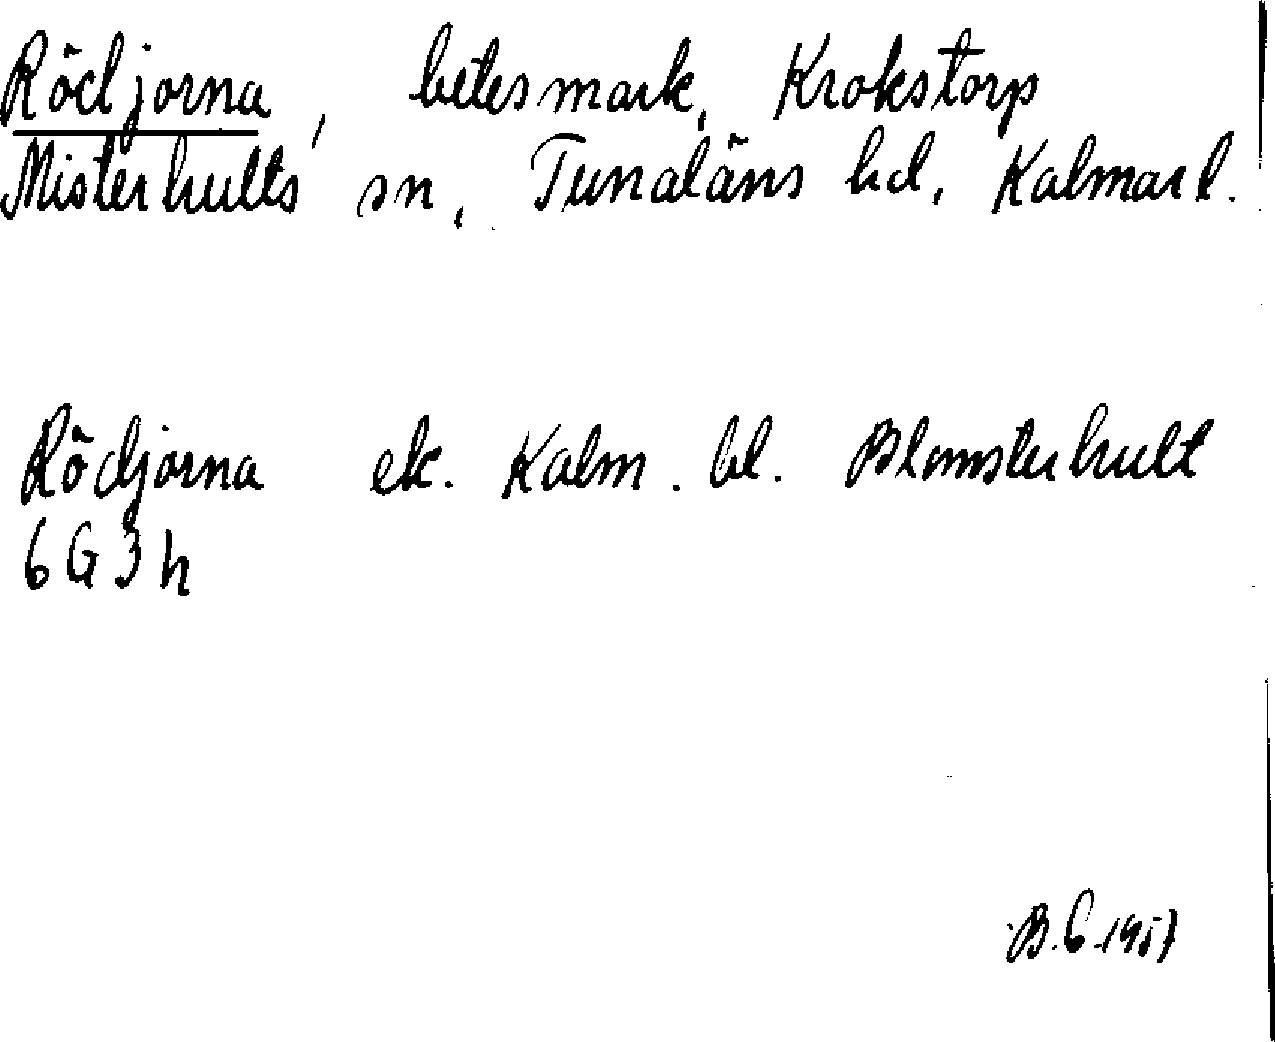 Rödjorna, betesmark, Krokstorp
Misterhults sn, Tunaläns hd, Kalmar l.
Rödjorna ek. Kalm. bl. Blomsterhult
6G3h
B.G. 1957